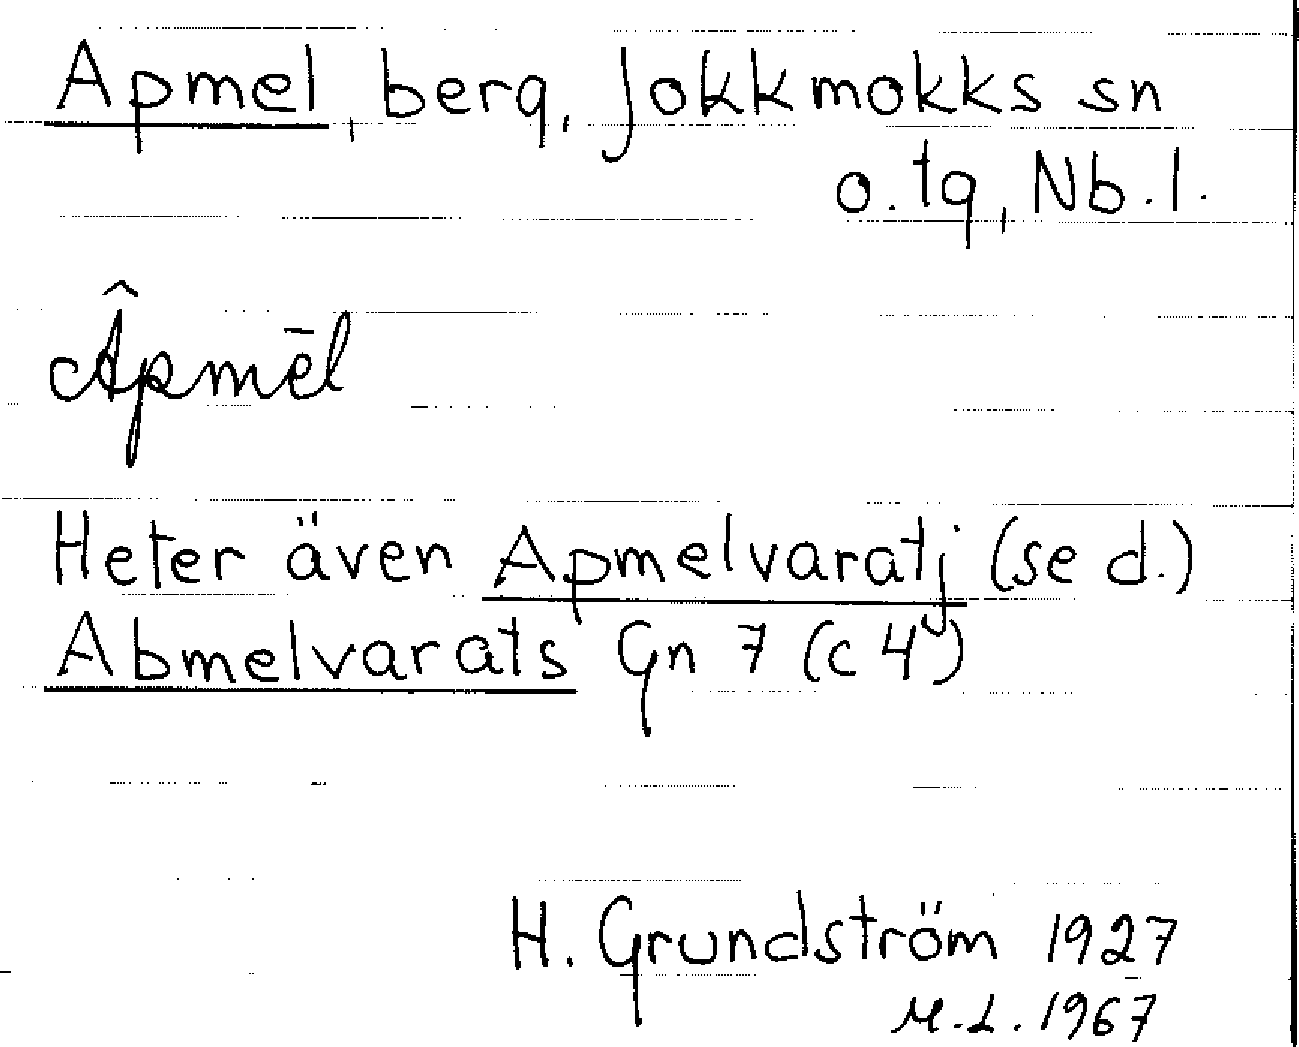 Apmel, berg, Jokkmokks sn
o. tg, Nb. l.
Âpmēl
Heter även Apmelvaratj (se d.)
Abmelvarats Gn 7 (c 4)
H. Grundström 1927
M. L. 1967